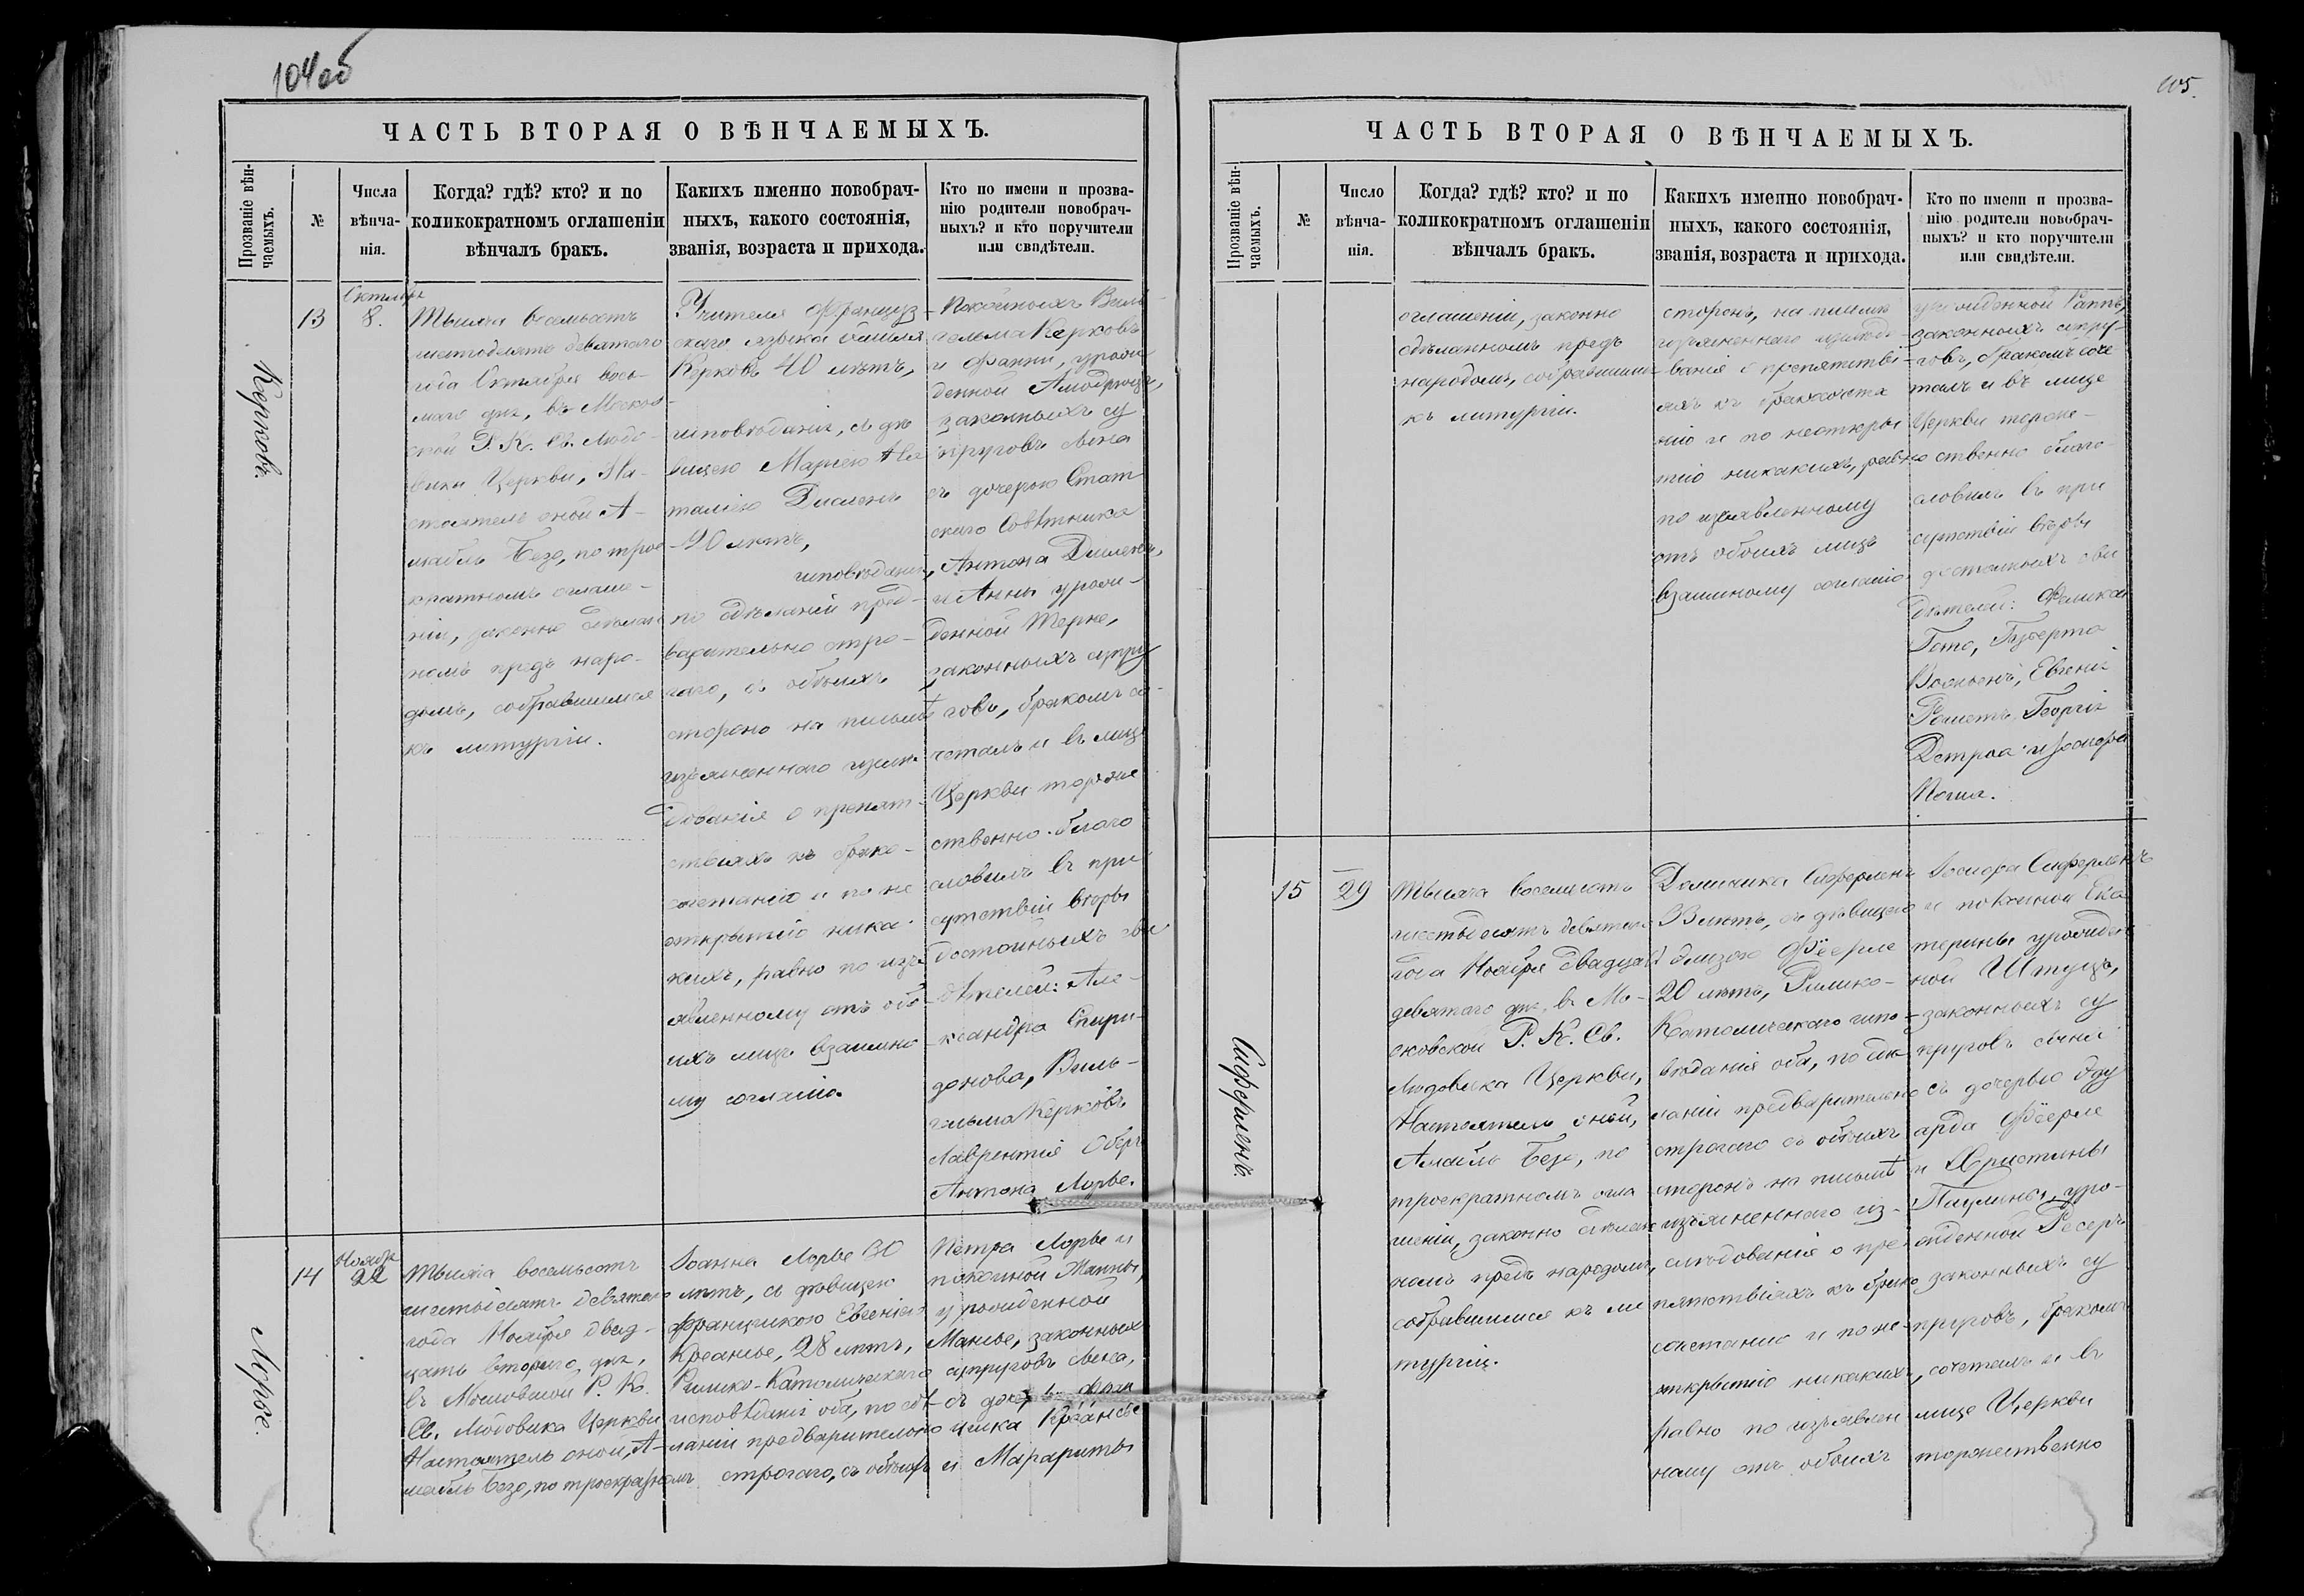 104об
ЧАСТЬ ВТОРАЯ О ВѢНЧАЕМЫХЪ.
Прозваніе вѣн-
чаемыхъ.
№
Числа
вѣнча-
нія.
Когда? гдѣ? кто? и по
коликократномъ оглашеніи
вѣнчалъ бракъ.
Какихъ именно новобрач-
ныхъ, какого состоянія,
званія, возраста и прихода.
Кто по имени и прозва-
нію родители новобрач-
ныхъ? и кто поручители
или свидѣтели.
Керковъ.
13
Октября
8.
Тысяча восемьсотъ
шестьдесятъ девятаго
года Октября вось-
маго дня, въ Москов-
ской Р. К. Св. Людо-
вика Церкви, На-
стоятель оной А-
мабль Безо, по трое
кратномъ оглаше-
ніи, законно сдѣлан
номъ предъ наро-
домъ, собравшимся
къ литургіи.
Учителя Француз-
скаго языка
Керковъ 40 лѣтъ,
исповѣданія, съ дѣ
вицею Маріею На
таліею Дисленъ
20 лѣтъ,
исповѣданія,
по сдѣланіи пред-
варительно стро-
гаго, съ обѣихъ
сторонъ на письмѣ
изъясненнаго изслѣ
дованія о препят-
ствіяхъ къ брако-
сочетанію и по не
открытію ника-
кихъ, равно по изъ
явленному отъ обо
ихъ лицъ взаимно
му согласію.
Покойныхъ Виль-
гельма Керковъ
и Фанни, урож
денной
законныхъ су
пруговъ сына
съ дочерью Стат
скаго Совѣтника
Антона Дисленъ,
и Анны урож-
денной Терне,
законныхъ супру
говъ, бракомъ со-
четалъ и въ лицѣ
Церкви торже
ственно благо
словилъ въ при
сутствіи вѣры
достойныхъ сви
дѣтелей: Але-
ксандра Спири-
донова, Виль-
гельма Керковъ
Лаврентія Оберъ
Антона Лорье.
Лорье.
14
Ноября
22
Тысяча восемьсотъ
шестьдесятъ девятаго
года Ноября двад-
цать втораго дня,
въ Московской Р. К.
Св. Людовика Церкви
Настоятель оной, А-
мабль Безо, по троекратномъ
Іоанна Лорье 30
лѣтъ, съ дѣвицею
Францискою Евгеніею
Креанье, 28 лѣтъ,
Римско-Католическаго
исповѣданія оба, по сдѣ-
ланіи предварительно
строгаго, съ обѣихъ
Петра Лорье и
покойной Маріи,
урожденной
Манье, законныхъ
супруговъ сына,
съ дочерью Фран
циска Креанье
и Маргариты
105.
ЧАСТЬ ВТОРАЯ О ВѢНЧАЕМЫХЪ.
Прозваніе вѣн-
чаемыхъ.
№
Число
вѣнча-
нія.
Когда? гдѣ? кто? и по
коликократномъ оглашеніи
вѣнчалъ бракъ.
Какихъ именно новобрач-
ныхъ, какого состоянія,
званія, возраста и прихода.
Кто по имени и прозва-
нію родители новобрач-
ныхъ? и кто поручители
или свидѣтели.
оглашеніи, законно
сдѣланномъ предъ
народомъ, собравшимся
къ литургіи.
сторонъ, на письмѣ
изъясненнаго изслѣдо-
ванія о препятстві-
яхъ къ бракосочета
нію и по неоткры
тію никакихъ, равно
по изъявленному
отъ обоихъ лицъ
взаимному согласію
урожденной Раппъ,
законныхъ супру-
говъ, бракомъ соче
талъ и въ лицѣ
Церкви торже-
ственно благо-
словилъ въ при
сутствіи вѣры
достойныхъ сви
дѣтелей: Феликса
Гото, Губерта
Евгенія
Георгія
Детруа и Іосифа
Сиферленъ
15
29
Тысяча восемьсотъ
шестьдесятъ девятаго
года Ноября двадцать
девятаго дня, въ Мо-
сковской Р. К. Св.
Людовика Церкви,
Настоятель оной,
Амабль Безо, по
троекратномъ огла
шеніи, законно сдѣлан
номъ предъ народомъ,
собравшимся къ ли
тургіи.
Доминика Сиферленъ
лѣтъ, съ дѣвицею
Элизою Фёерле
20 лѣтъ, Римско-
Католическаго испо-
вѣданія оба, по сдѣ
ланіи предварительно
строгаго съ обѣихъ
сторонъ на письмѣ
изъясненнаго из-
слѣдованія о пре-
пятствіяхъ къ брако
сочетанію и по не-
открытію никакихъ,
равно по изъявлен-
ному отъ обоихъ
Іосифа Сиферленъ
и покойной Ека
терины урожден
ной Штуцъ,
законныхъ су
пруговъ сына
съ дочерью Эду
арда Фёерле
и Христины
Паулины, уро-
жденной Ресеръ
законныхъ су
пруговъ, бракомъ
сочеталъ и въ
лицѣ Церкви
торжественно